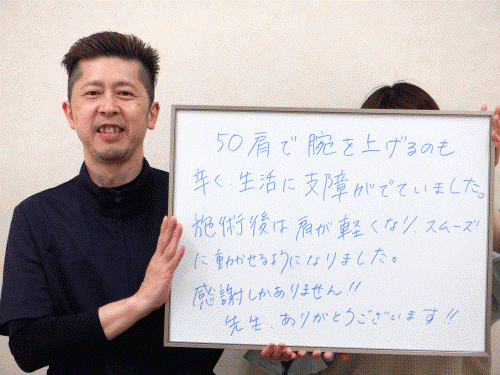 50肩で腕を上げるのも
辛く、生活に支障がでていました。
施術後は肩が軽くなり、スムーズ
に動かせるようになりました。
感謝しかありません!!
先生、ありがとうございます!!